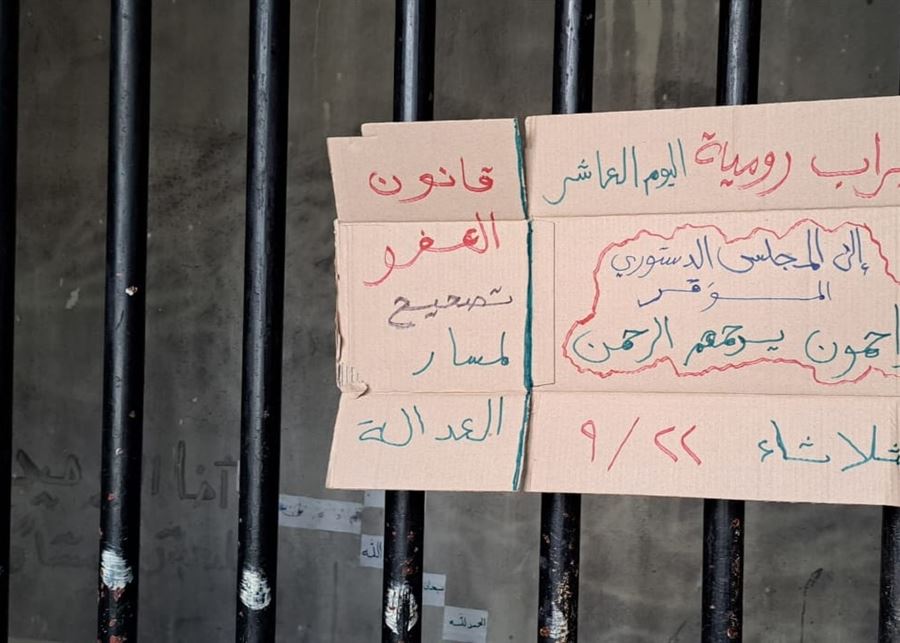 راب رومية اليوم العاشر
إلى المجلس الدستوري
الموقر
احمون يرحمهم الرحمن
ثلاثاء ٢٢ / ٩
قانون
العفو
تصحيح
لمسار
العدالة
أنا
الله
سبحان
الحمد لله